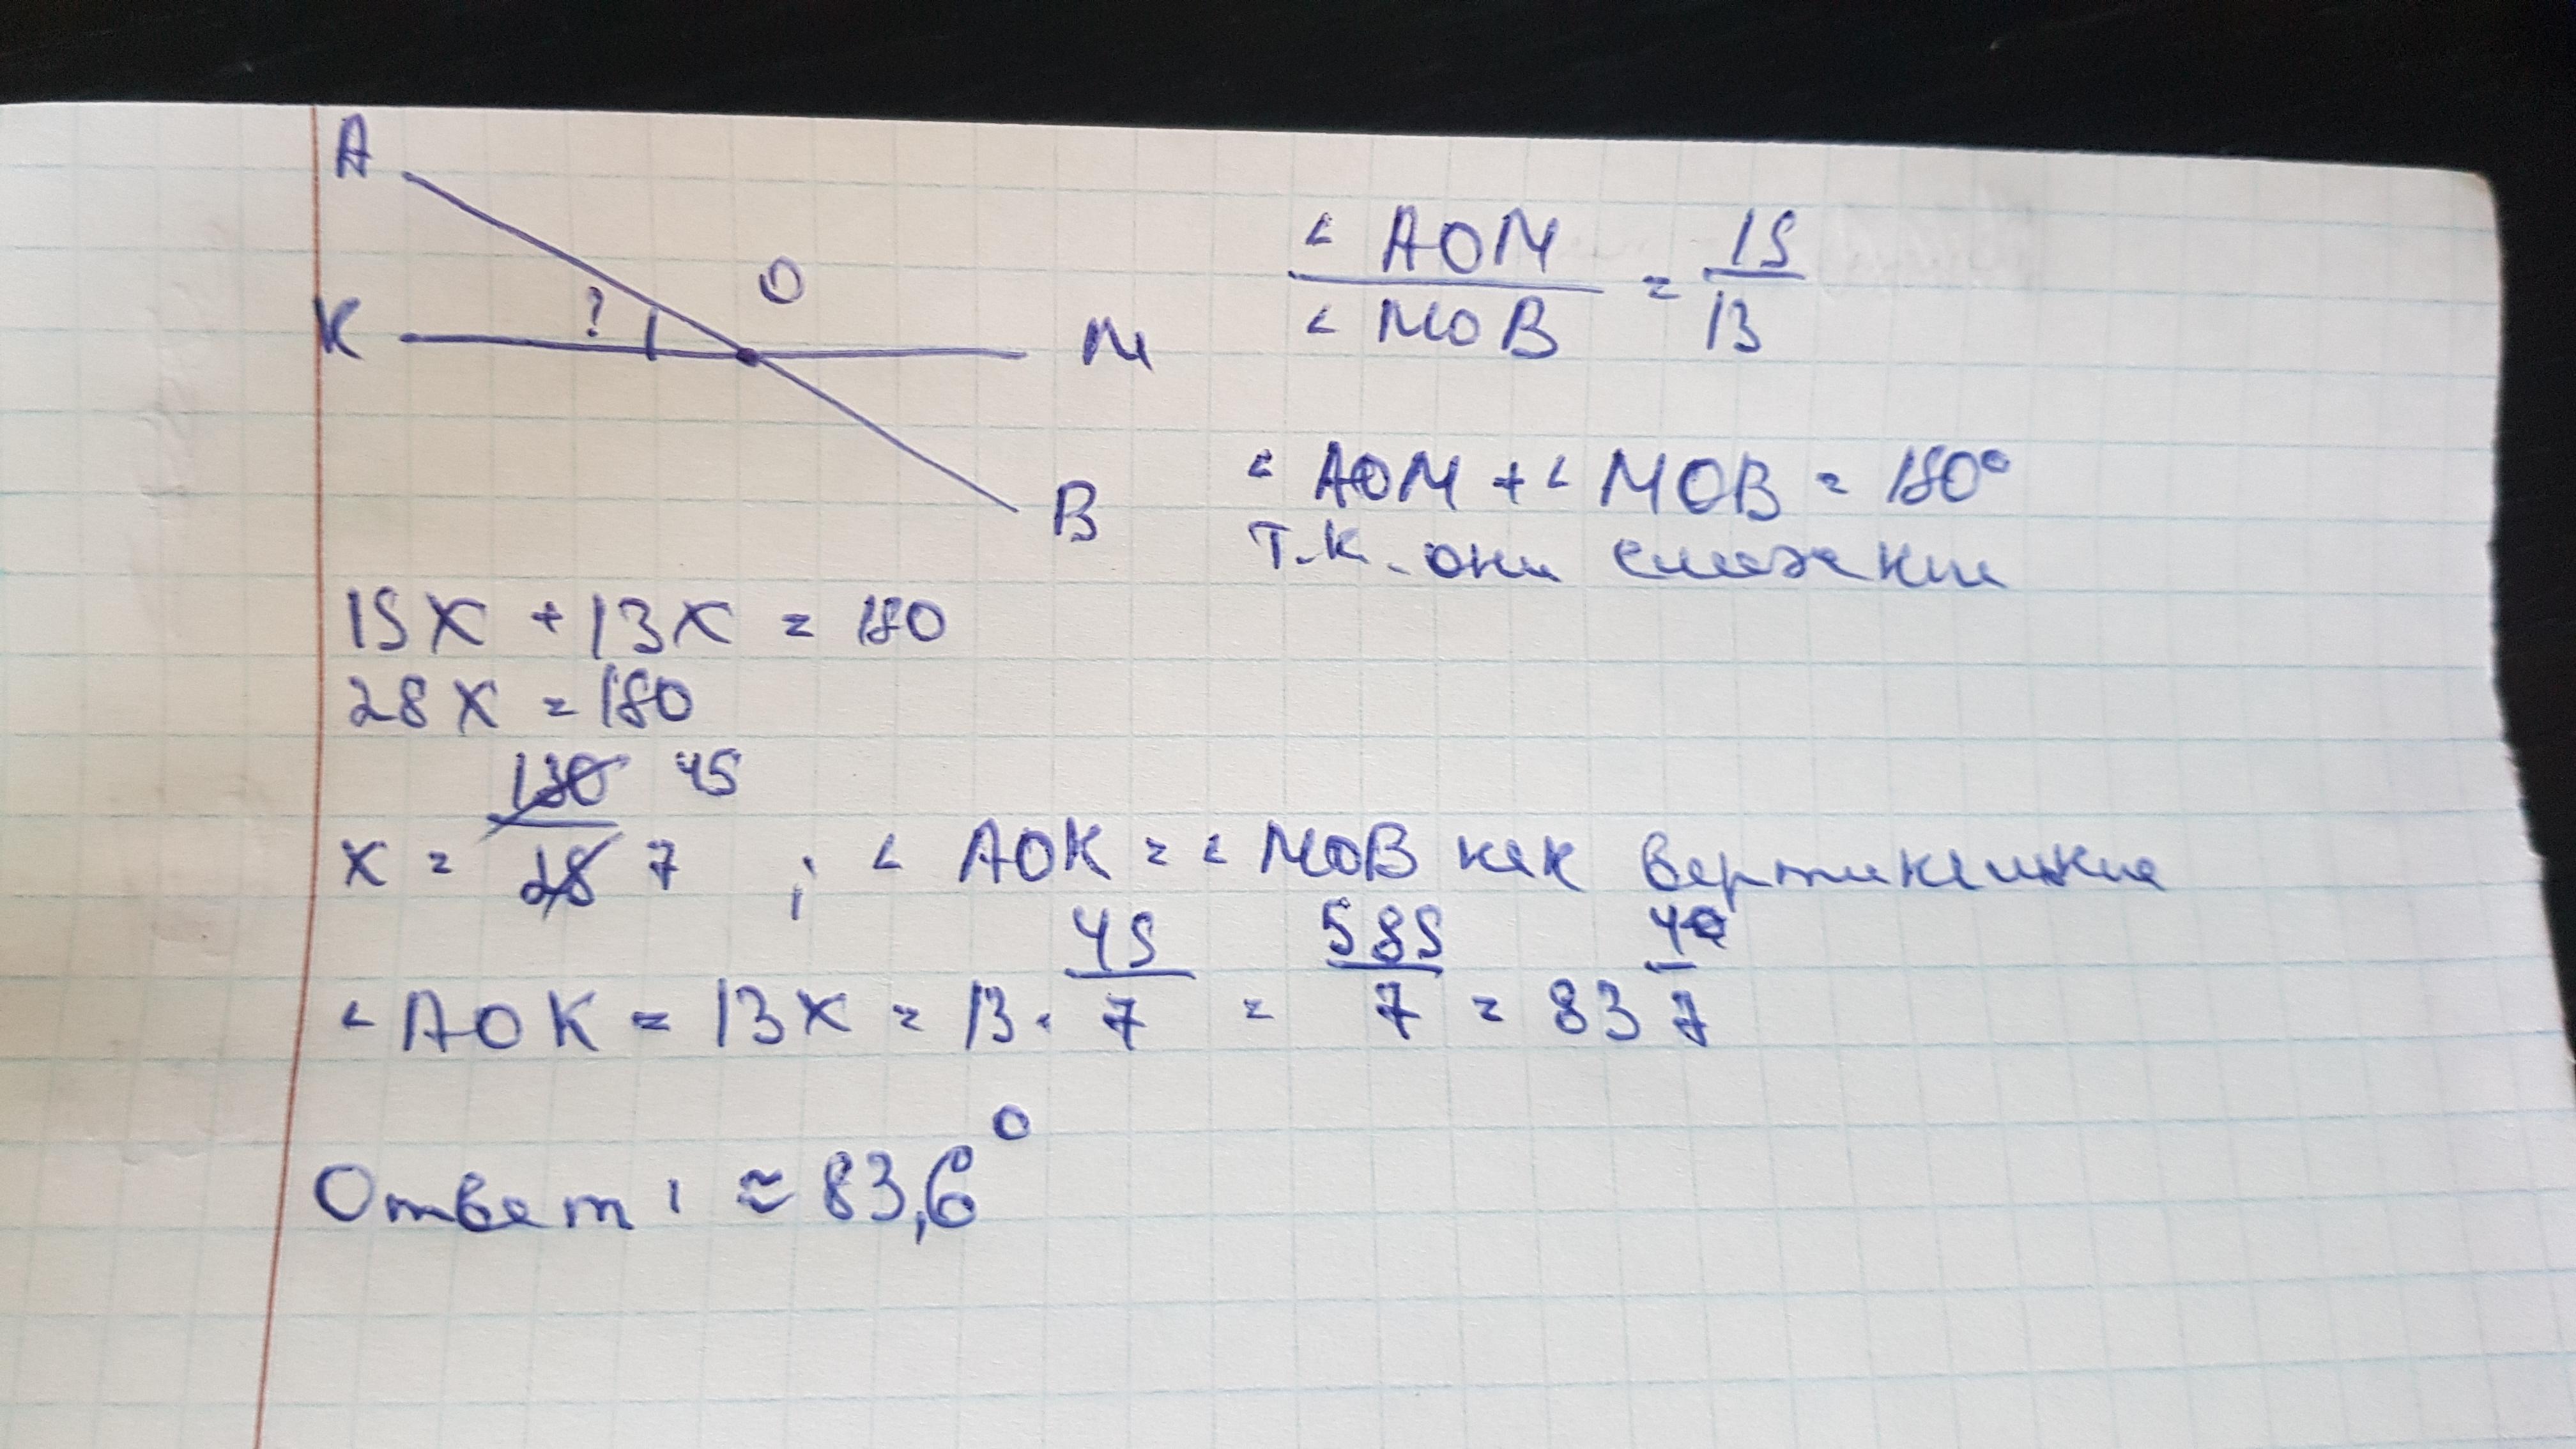 A
K ? O M
B
∠ AOM / ∠ MOB = 15/13
∠ AOM + ∠ MOB = 180°
т.к. они смежные
15x + 13x = 180
28x = 180
x = 180/28 45/7 ; ∠ AOK = ∠ MOB как вертикальные
∠ AOK = 13x = 13 · 45/7 = 585/7 = 83 4/7
Ответ: ≈ 83,6°